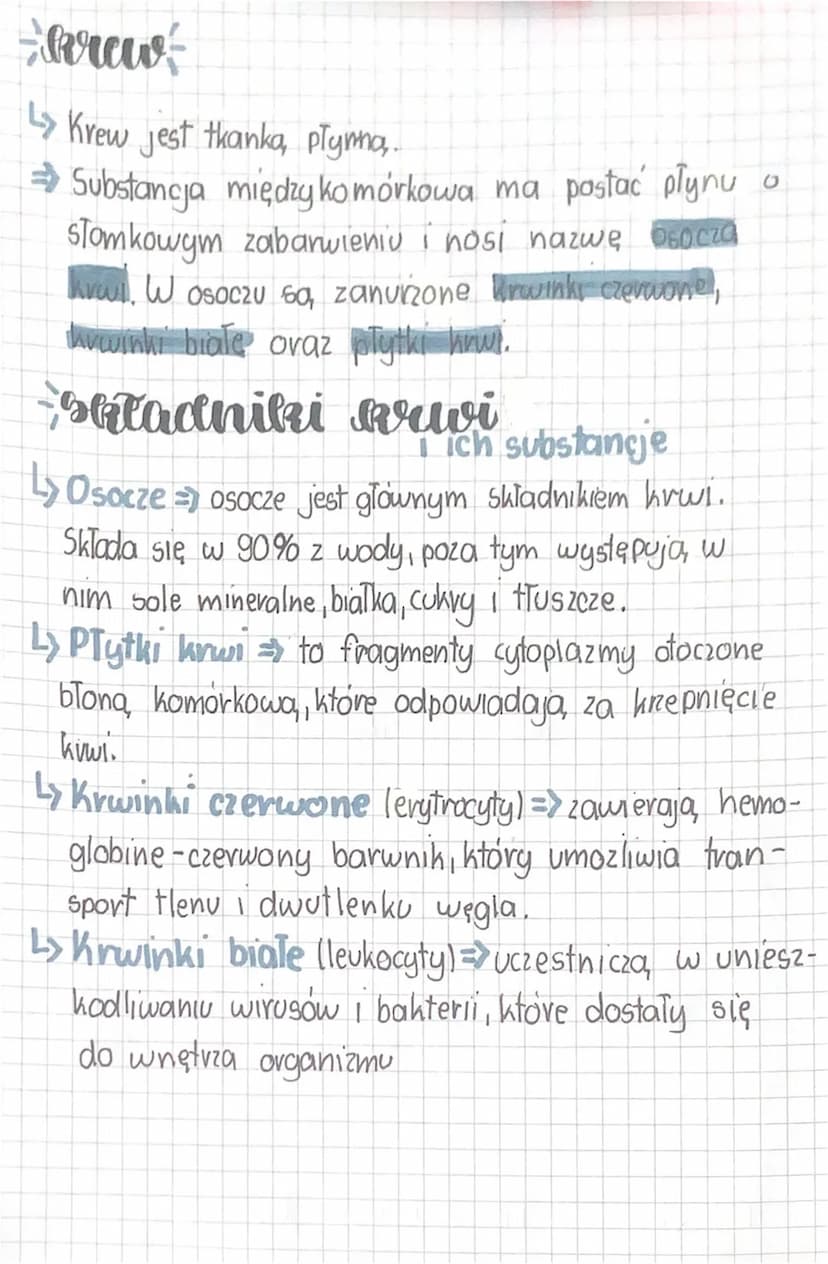 krew
↳ Krew jest tkanką płynną.
⇒ Substancja międzykomórkowa ma postać płynu o
słomkowym zabarwieniu i nosi nazwę osocza
krwi. W osoczu są zanurzone krwinki czerwone,
krwinki białe oraz płytki krwi.
składniki krwi
i ich substancje
↳ Osocze ⇒ osocze jest głównym składnikiem krwi.
Składa się w 90% z wody, poza tym występują w
nim sole mineralne, białka, cukry i tłuszcze.
↳ Płytki krwi ⇒ to fragmenty cytoplazmy otoczone
błoną komórkową, które odpowiadają za krzepnięcie
krwi.
↳ Krwinki czerwone (erytrocyty) ⇒ zawierają hemo-
globine - czerwony barwnik, który umożliwia tran-
sport tlenu i dwutlenku węgla.
↳ Krwinki białe (leukocyty) ⇒ uczestniczą w uniesz-
kodliwianiu wirusów i bakterii, które dostały się
do wnętrza organizmu